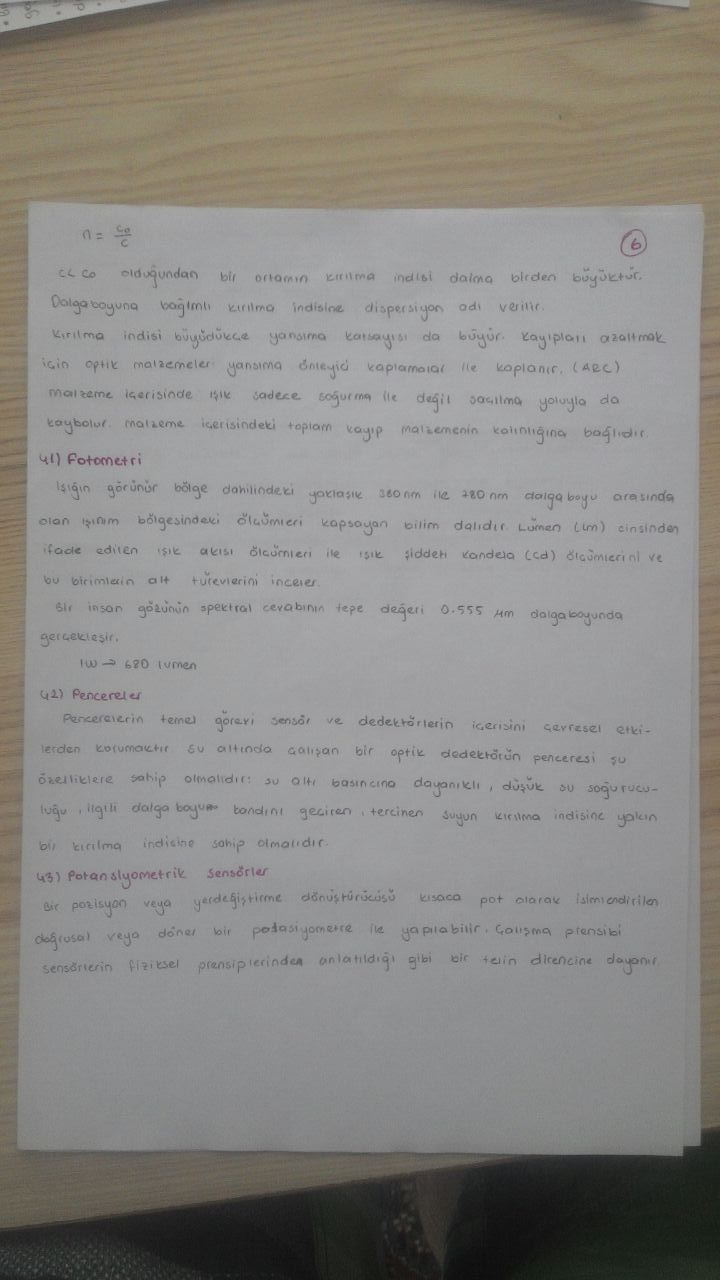 n = c₀/c
6
c < c₀ olduğundan bir ortamın kırılma indisi daima birden büyüktür.
Dalgaboyuna bağımlı kırılma indisine dispersiyon adı verilir.
Kırılma indisi büyüdükçe yansıma katsayısı da büyür. Kayıpları azaltmak
için optik malzemeler yansıma önleyici kaplamalar ile kaplanır. (ARC)
Malzeme içerisinde ışık sadece soğurma ile değil saçılma yoluyla da
kaybolur. malzeme içerisindeki toplam kayıp malzemenin kalınlığına bağlıdır.
41) Fotometri
Işığın görünür bölge dahilindeki yaklaşık 380 nm ile 780 nm dalga boyu arasında
olan ışınım bölgesindeki ölçümleri kapsayan bilim dalıdır. Lümen (lm) cinsinden
ifade edilen ışık akısı ölçümleri ile ışık şiddeti kandela (cd) ölçümlerini ve
bu birimlein alt türevlerini inceler.
Bir insan gözünün spektral cevabının tepe değeri 0.555 µm dalgaboyunda
gerçekleşir.
1W → 680 lumen
42) Pencereler
Pencerelerin temel görevi sensör ve dedektörlerin içerisini çevresel etki-
lerden korumaktır. Su altında çalışan bir optik dedektörün penceresi şu
özelliklere sahip olmalıdır: su altı basıncına dayanıklı, düşük su soğurucu-
luğu, ilgili dalga boyu bandını geçiren, tercinen suyun kırılma indisine yakın
bir kırılma indisine sahip olmalıdır.
43) Potansiyometrik Sensörler
Bir pozisyon veya yerdeğiştirme dönüştürücüsü kısaca pot olarak isimlendirilen
doğrusal veya döner bir potasiyometre ile yapılabilir. Çalışma prensibi
sensörlerin fiziksel prensiplerinden anlatıldığı gibi bir telin direncine dayanır.